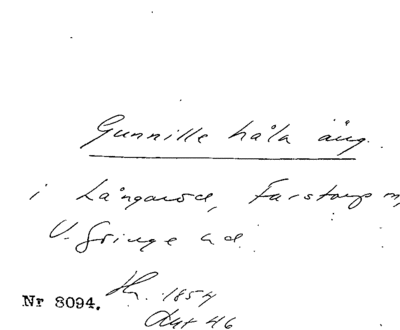 Gunnille håla äng.
i Långaröd, Farstorp
V. Göinge hd.
Hy. 1854
Nr 8094.
Akt 46